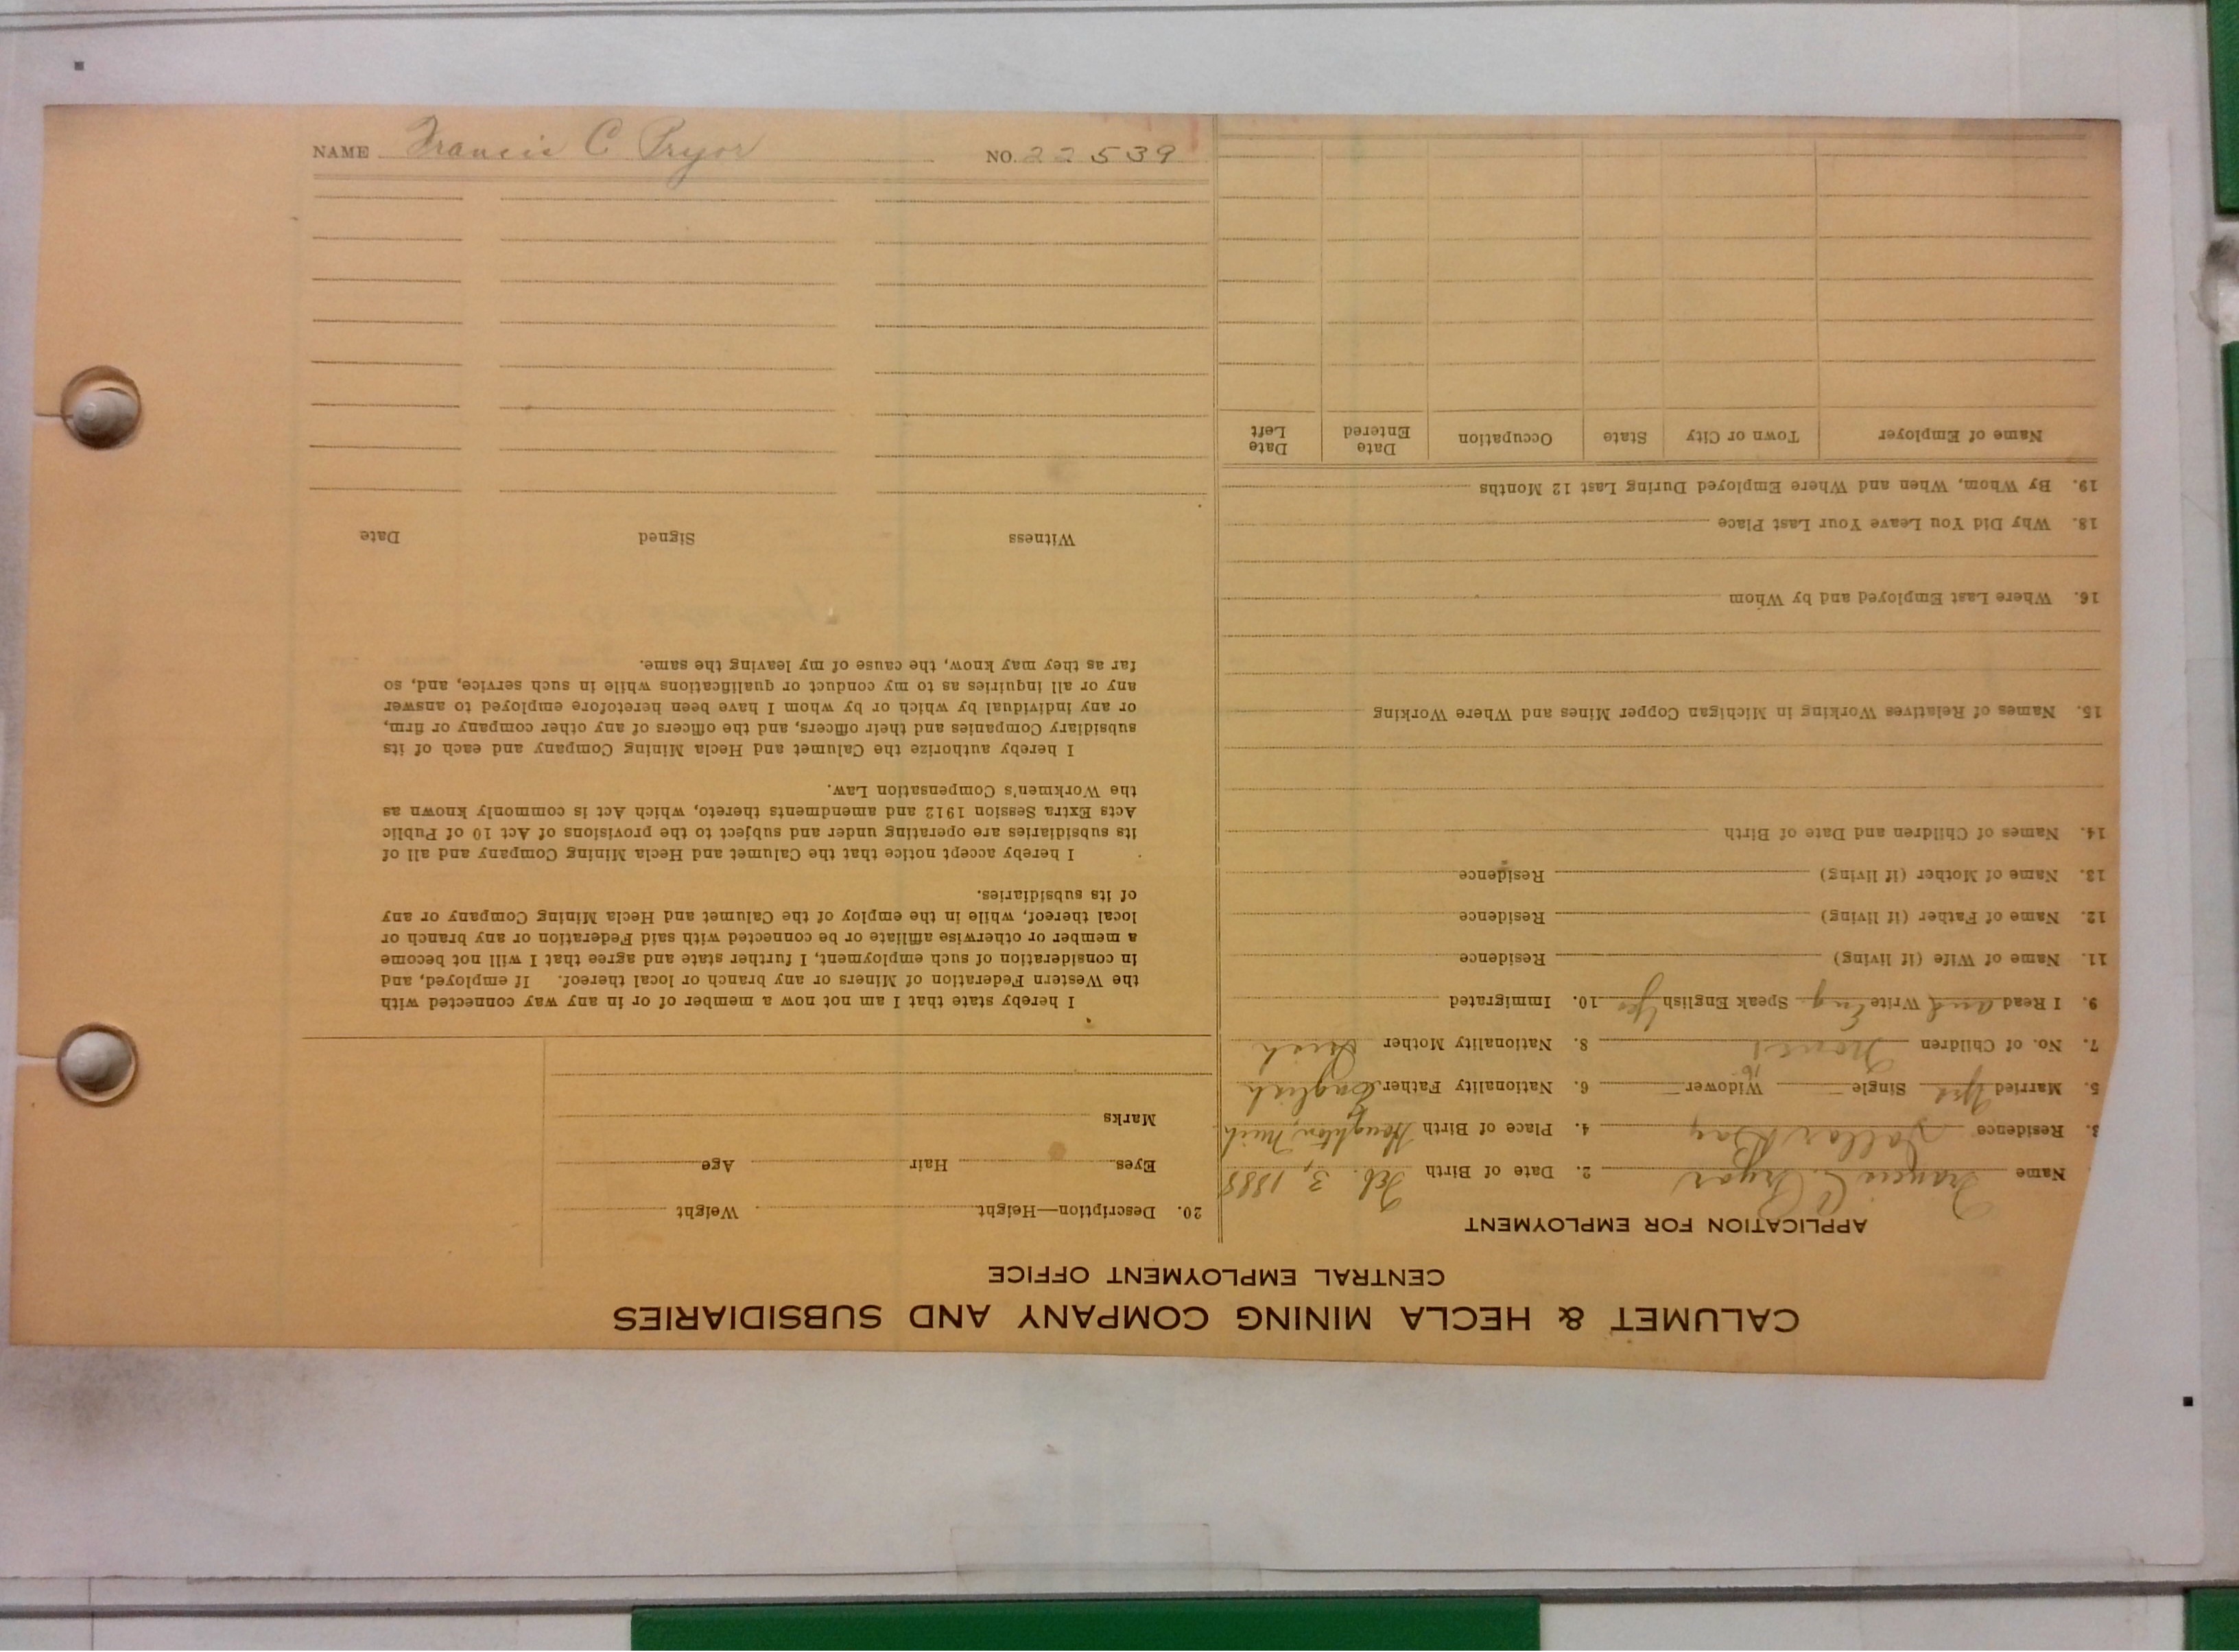 CALUMET & HECLA MINING COMPANY AND SUBSIDIARIES
CENTRAL EMPLOYMENT OFFICE
APPLICATION FOR EMPLOYMENT
Name Francis C. Pryor 2. Date of Birth Feb. 3, 1888
3. Residence Dollar Bay 4. Place of Birth Houghton, Mich
5. Married yes Single Widower 6. Nationality Father English
7. No. of Children None 8. Nationality Mother Irish
9. I Read and Write Eng Speak English yes 10. Immigrated
11. Name of Wife (if living) Residence
12. Name of Father (if living) Residence
13. Name of Mother (if living) Residence
14. Names of Children and Date of Birth
15. Names of Relatives Working in Michigan Copper Mines and Where Working
16. Where Last Employed and by Whom
18. Why Did You Leave Your Last Place
19. By Whom, When and Where Employed During Last 12 Months
Name of Employer Town or City State Occupation Date Entered Date Left
20. Description—Height Weight
Eyes Hair Age
Marks
I hereby state that I am not now a member of or in any way connected with
the Western Federation of Miners or any branch or local thereof. If employed, and
in consideration of such employment, I further state and agree that I will not become
a member or otherwise affiliate or be connected with said Federation or any branch or
local thereof, while in the employ of the Calumet and Hecla Mining Company or any
of its subsidiaries.
I hereby accept notice that the Calumet and Hecla Mining Company and all of
its subsidiaries are operating under and subject to the provisions of Act 10 of Public
Acts Extra Session 1912 and amendments thereto, which Act is commonly known as
the Workmen's Compensation Law.
I hereby authorize the Calumet and Hecla Mining Company and each of its
subsidiary Companies and their officers, and the officers of any other company or firm,
or any individual by which or by whom I have been heretofore employed to answer
any or all inquiries as to my conduct or qualifications while in such service, and, so
far as they may know, the cause of my leaving the same.
Witness Signed Date
NAME Francis C Pryor NO. 22539